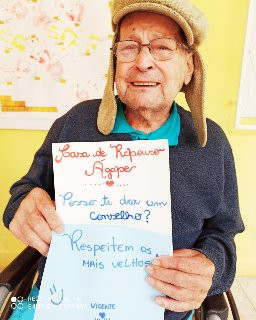 Casa de Repouso
Ágape
Posso te dar um
conselho?
Respeitem os
mais velhos!
VICENTE
REDMI NOTE 8